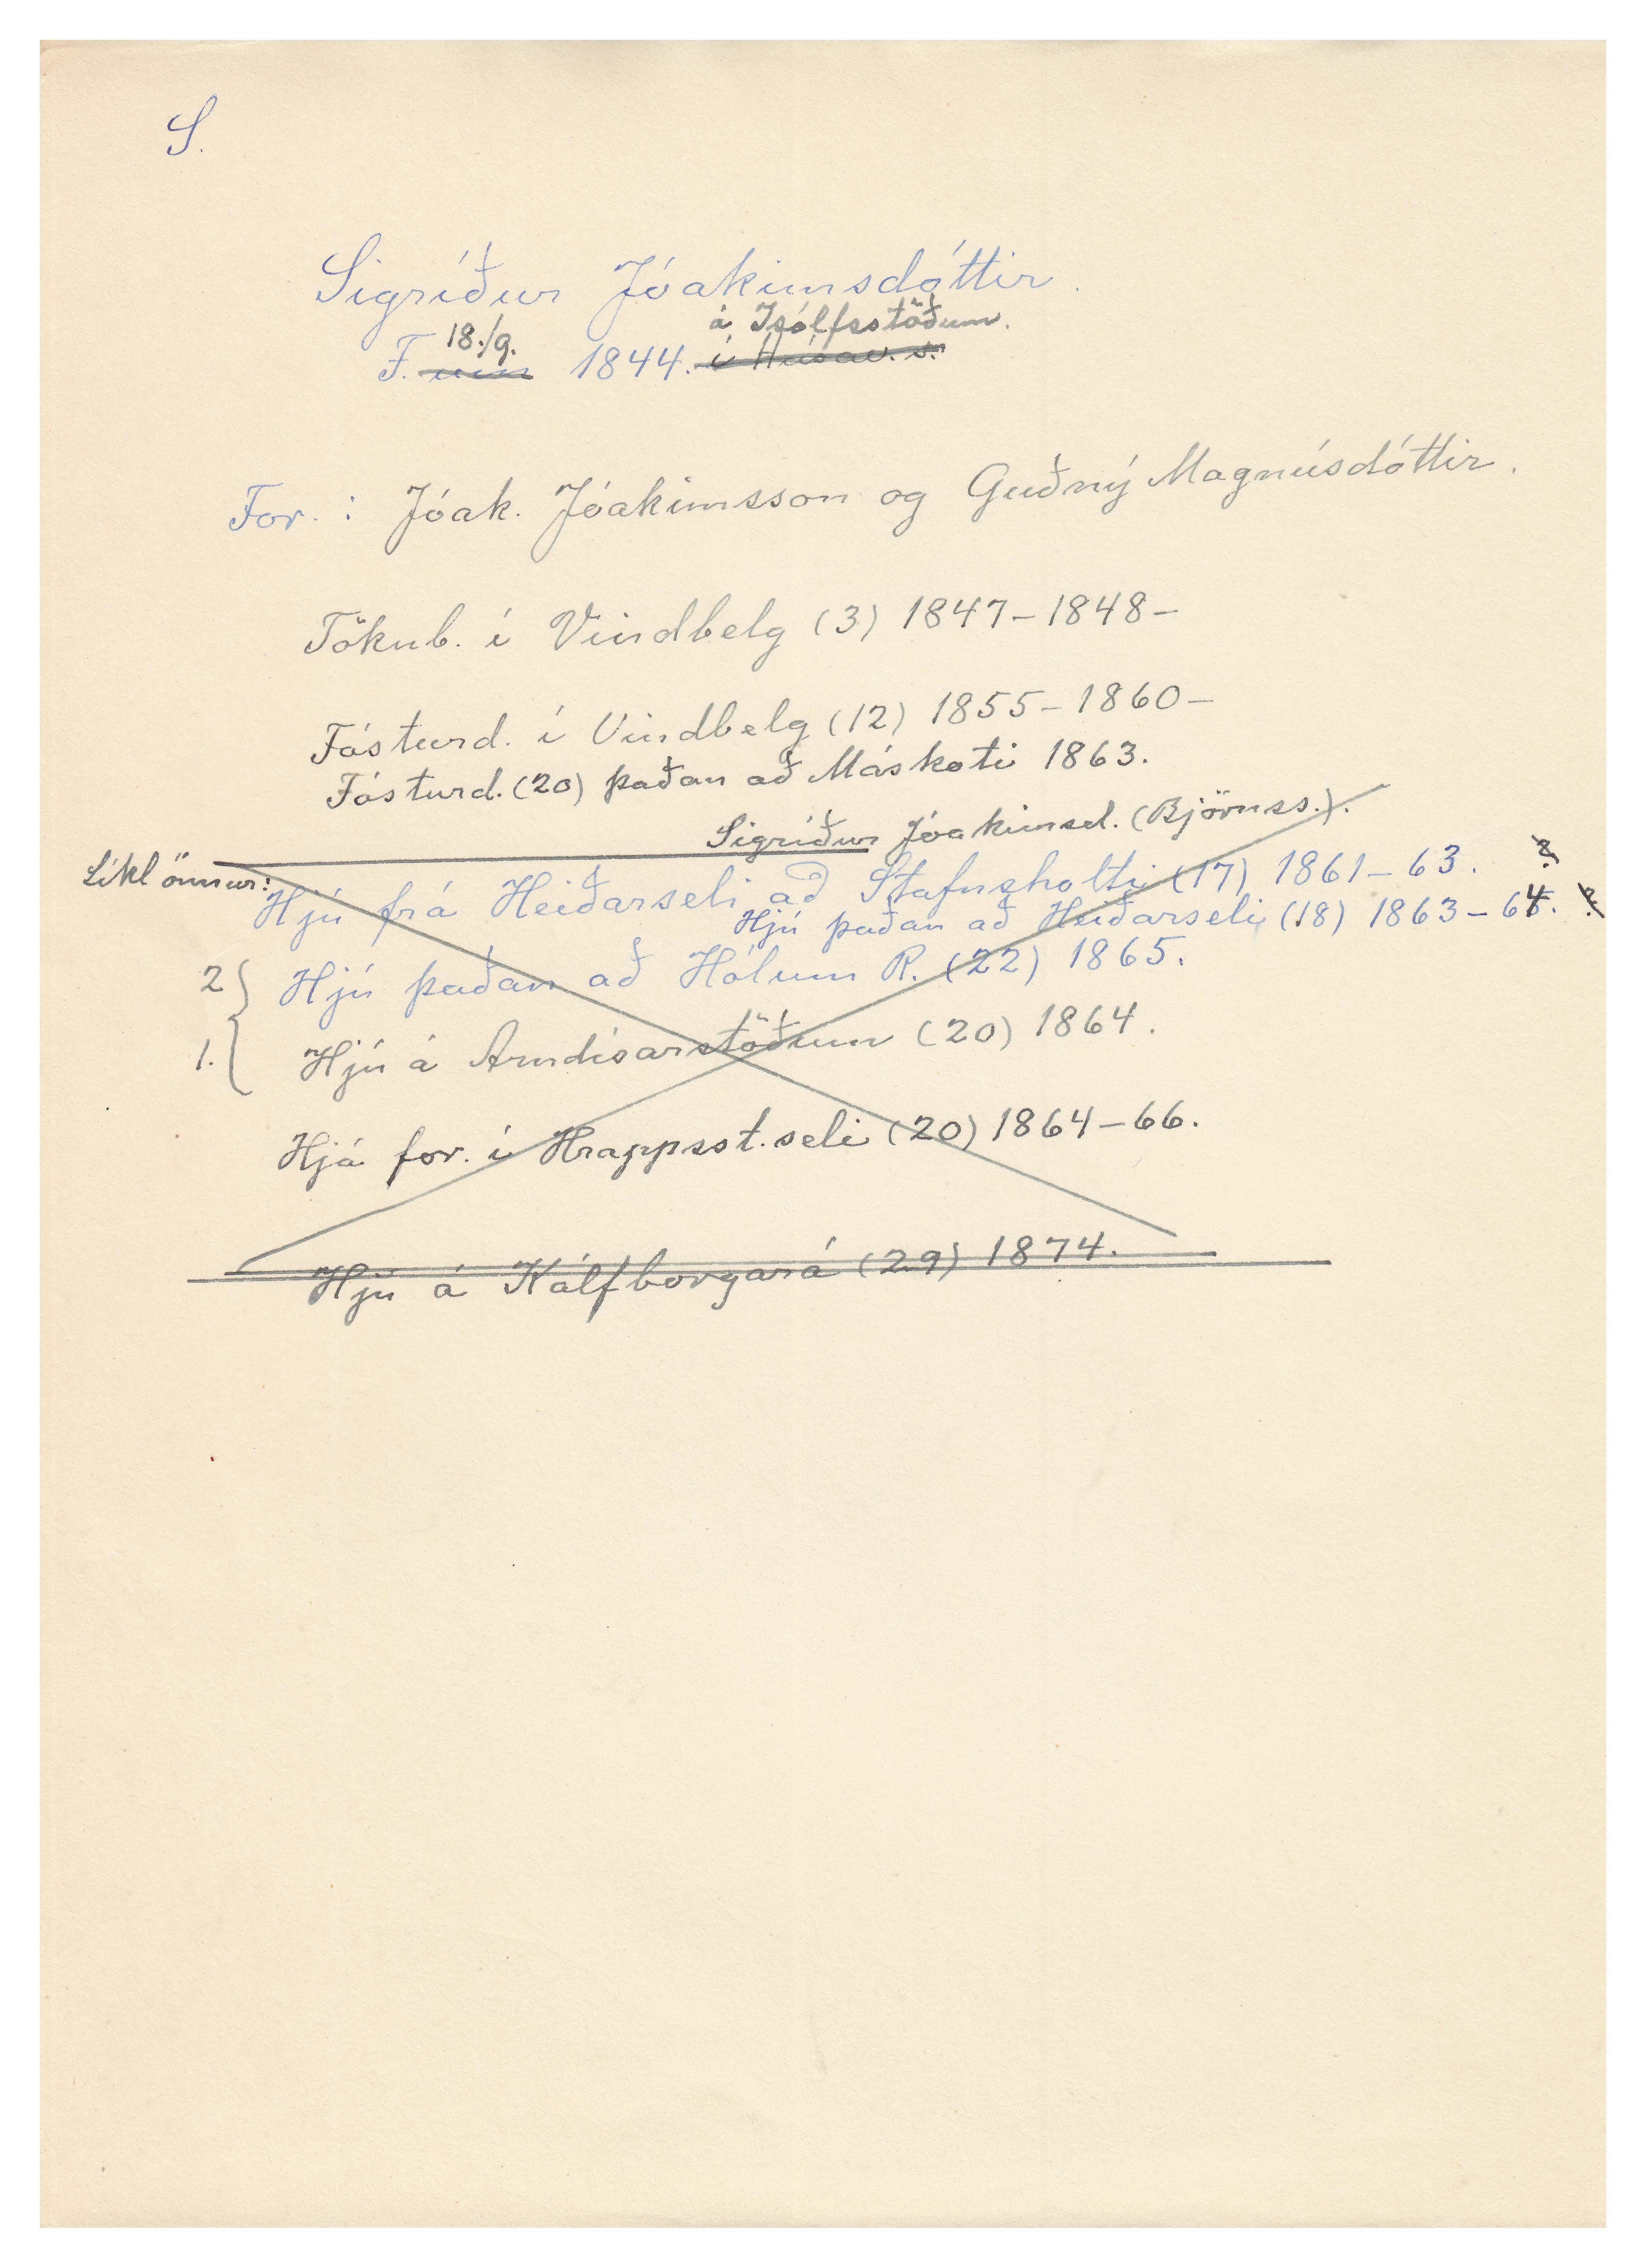 S.
Sigríður Jóakimsdóttir.
18./9. á Ísólfsstöðum.
F. um 1844. í Húsav. s.
For. : Jóak. Jóakimsson og Guðný Magnúsdóttir.
Tökub. í Vindbelg (3) 1847-1848-
Fósturd. í Vindbelg (12) 1855-1860-
Fósturd. (20) þaðan að Máskoti 1863.
Sigríður Jóakimsd. (Björnss.).
Líkl önnur: Hjú frá Heiðarseli að Stafnsholti (17) 1861-63. ?
Hjú þaðan að Heiðarseli (18) 1863-64. ?
2 } Hjú þaðan að Hólum R. (22) 1865.
1. { Hjú á Arndísarstöðum (20) 1864.
Hjá for. í Hrappsst.seli (20) 1864-66.
Hjú á Kálfborgará (29) 1874.